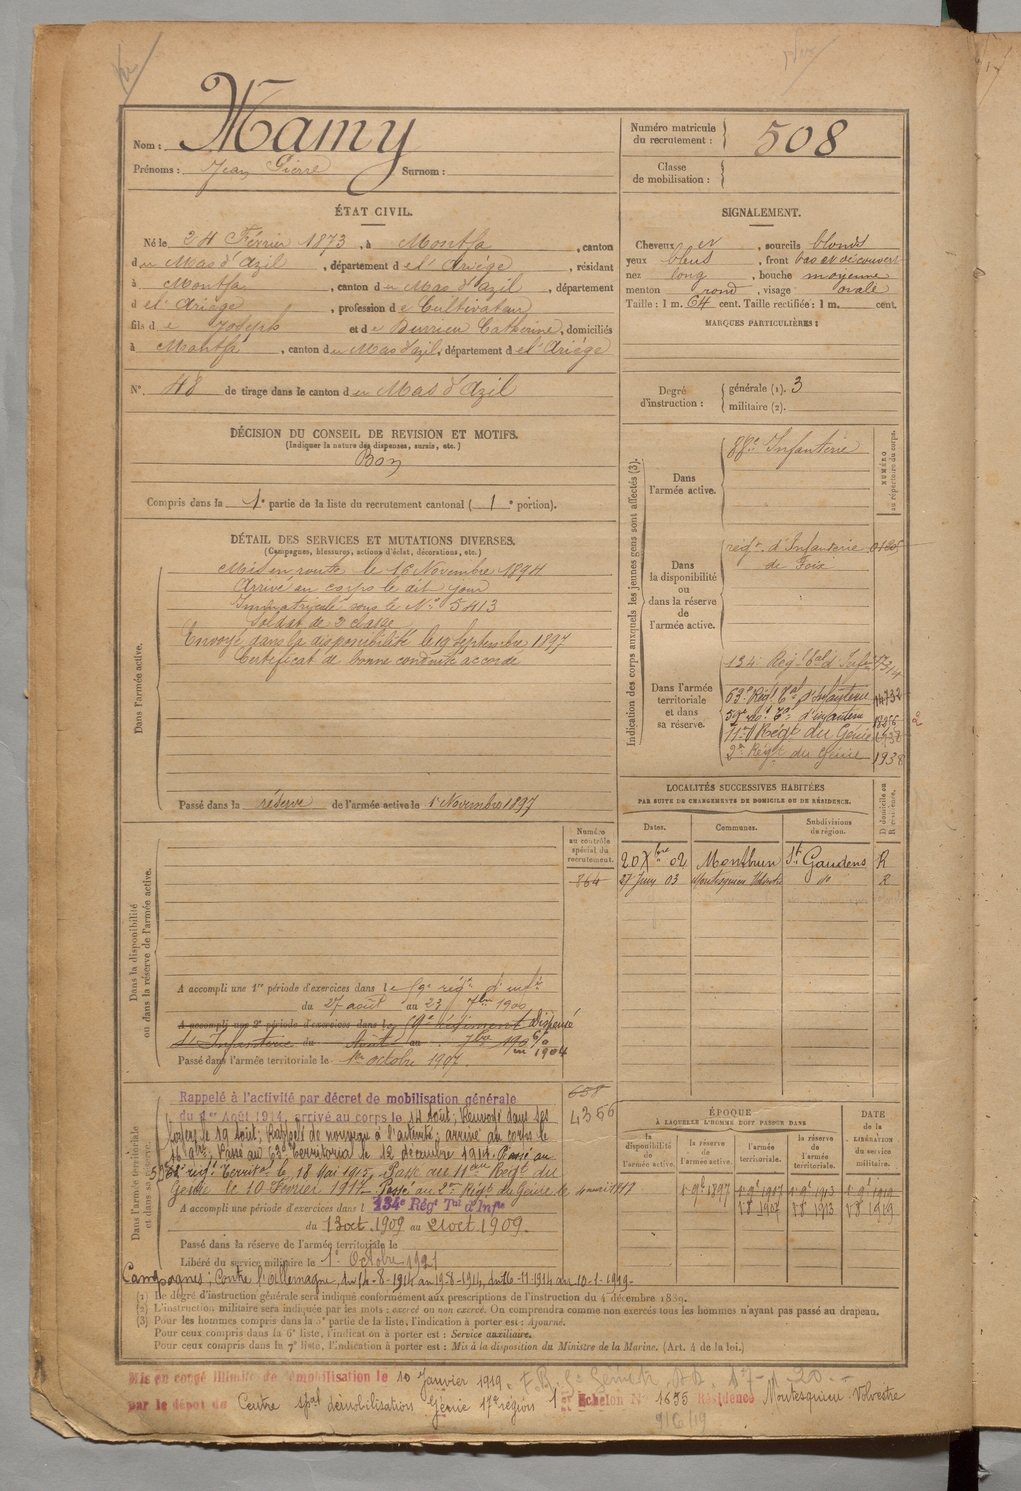 Nom : Mamy
Prénoms : Jean Pierre Surnom :
Numéro matricule du recrutement : 508
Classe de mobilisation :
ÉTAT CIVIL.
Né le 24 Février 1873, à Montfa, canton
du Mas d'Azil, département de l'Ariège, résidant
à Montfa, canton du Mas d'azil, département
de l'Ariège, profession de Cultivateur
fils de Joseph et de Burrieu Catherine, domiciliés
à Montfa, canton du Mas d'azil, département de l'Ariège
N° 48 de tirage dans le canton du Mas d'Azil
SIGNALEMENT.
Cheveux et, sourcils blonds
yeux bleus, front bas et découvert
nez long, bouche moyenne
menton rond, visage ovale
Taille : 1 m. 64 cent. Taille rectifiée : 1 m. cent.
MARQUES PARTICULIÈRES :
Degré d'instruction : générale (1). 3
militaire (2).
DÉCISION DU CONSEIL DE REVISION ET MOTIFS.
(Indiquer la nature des dispenses, sursis, etc.)
Bon
Compris dans la 1e partie de la liste du recrutement cantonal (1e portion).
DÉTAIL DES SERVICES ET MUTATIONS DIVERSES.
(Campagnes, blessures, actions d'éclat, décorations, etc.)
Dans l'armée active.
Mis en route le 16 Novembre 1894
Arrivé au corps le dit jour
Immatriculé sous le N° 5413
Soldat de 2 classe
Envoyé dans la disponibilité le 19 septembre 1897
Certificat de bonne conduite accordé
Passé dans la réserve de l'armée active le 1 Novembre 1897
Indication des corps auxquels les jeunes gens sont affectés (3).
NUMÉRO au répertoire du corps.
Dans l'armée active.
88e Infanterie
Dans la disponibilité ou dans la réserve de l'armée active.
régt. d'Infanterie
de Foix
Dans l'armée territoriale et dans sa réserve.
134 Régt tal d'Infie
63e Régt Tal d'Infanterie
d'infanterie
11e Régt du Génie
2e Régt du Génie 1938
LOCALITÉS SUCCESSIVES HABITÉES
PAR SUITE DE CHANGEMENTS DE DOMICILE OU DE RÉSIDENCE.
Dates. Communes. Subdivisions de région. D domicile ou R résidence.
20 Xbre 02 Montbrun St Gaudens R
27 Juin 03 Montesquieu Volvestre do R
Numéro au contrôle spécial du recrutement.
364
Dans la disponibilité ou dans la réserve de l'armée active.
A accompli une 1re période d'exercices dans le régt. d'infie
du 27 août au 23 7bre 1900
A accompli une 2e période d'exercices dans le Régiment Dispensé
d'Infanterie du Août au 7bre en 1904
Passé dans l'armée territoriale le 1er octobre 1907
Dans l'armée territoriale et dans sa réserve.
658
4366
Rappelé à l'activité par décret de mobilisation générale
du 1er Août 1914, arrivé au corps le 14 août; Renvoyé dans ses
foyers le 19 août; Rappelé de nouveau à l'activité; arrivé au corps le
16 9bre; Passé au 63e territorial le 12 décembre 1914. Passé au
régt Territal le 18 Mai 1915. Passé au 11ème Régt du
Génie le 10 Février 1917. Passé au 2e Régt du Génie le
A accompli une période d'exercices dans l 134e Régt Tal d'Infie
du 13 oct. 1909 au 21 oct 1909.
Passé dans la réserve de l'armée territoriale le
Libéré du service militaire le 1er Octobre 1921
Campagnes; Contre l'Allemagne, du 14-8-1914 au 19-8-1914, du 16-11-1914 au 10-1-1919.
ÉPOQUE
À LAQUELLE L'HOMME DOIT PASSER DANS
DATE de la LIBÉRATION du service militaire.
la disponibilité de l'armée active. la réserve de l'armée active. l'armée territoriale. la réserve de l'armée territoriale.
1 9bre 1897
(1) Le degré d'instruction générale sera indiqué conformément aux prescriptions de l'instruction du 4 décembre 1889.
(2) L'instruction militaire sera indiquée par les mots : exercé ou non exercé. On comprendra comme non exercés tous les hommes n'ayant pas passé au drapeau.
(3) Pour les hommes compris dans la 5e partie de la liste, l'indication à porter est : Ajourné.
Pour ceux compris dans la 6e liste, l'indication à porter est : Service auxiliaire.
Pour ceux compris dans la 7e liste, l'indication à porter est : Mis à la disposition du Ministre de la Marine. (Art. 4 de la loi.)
Mis en congé illimité de démobilisation le 10 Janvier 1919.
par le dépôt du Centre spal démobilisation Génie 17e région 1er Echelon N° 1655 Résidence Montesquieu Volvestre